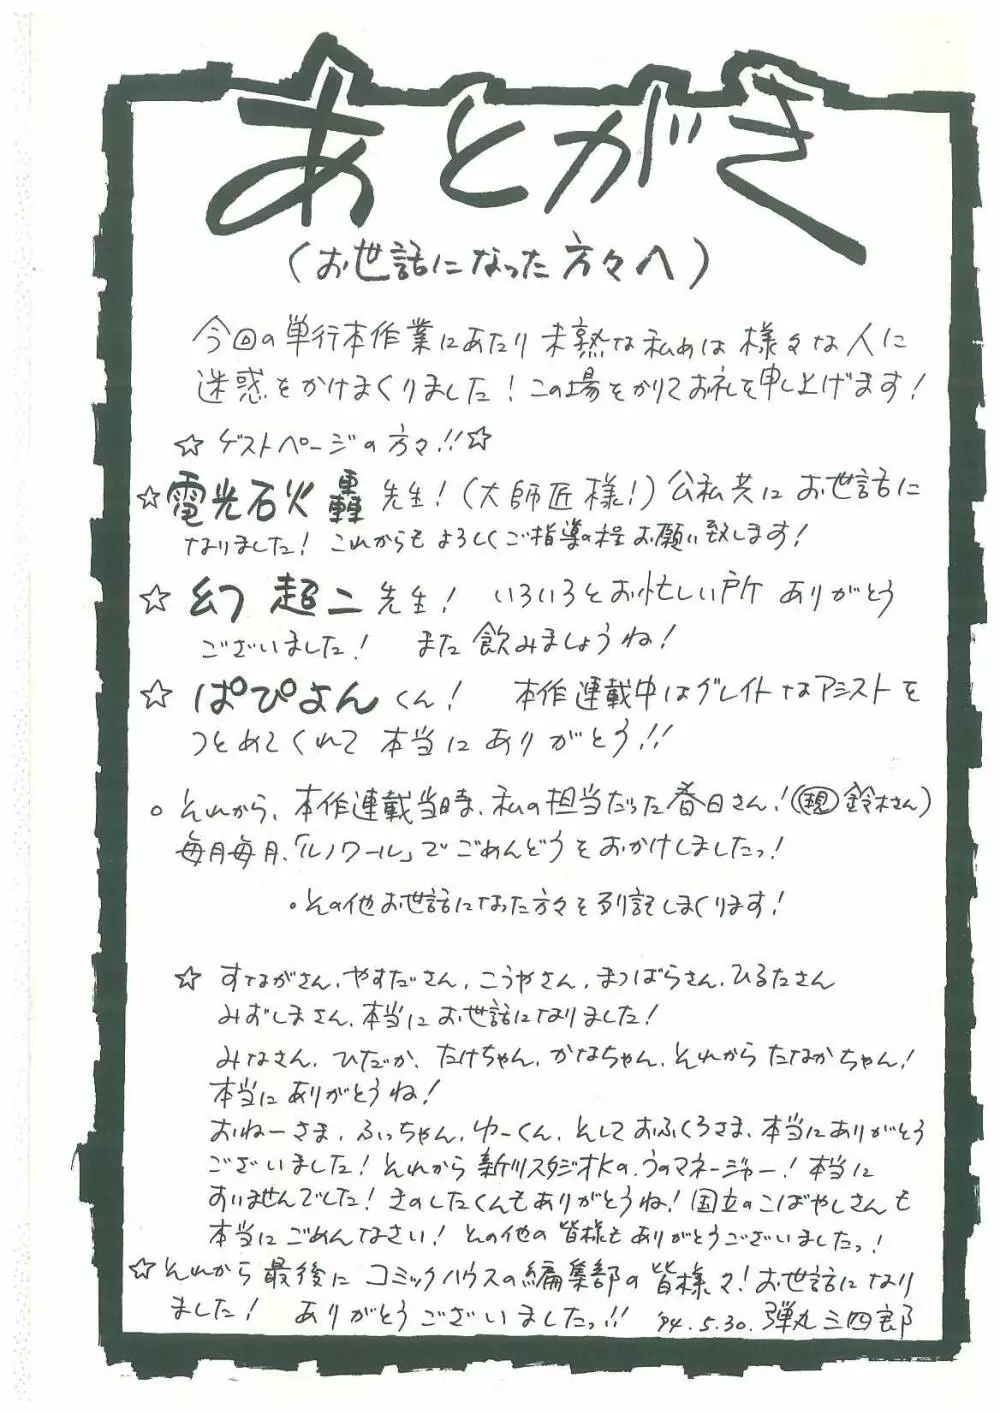 あとがき
(お世話になった方々へ)
今回の単行本作業にあたり未熟な私めは様々な人に
迷惑をかけまくりました!この場をかりてお礼を申し上げます!
☆ゲストページの方々!!☆
☆電光石火 轟 先生!(大師匠様!)公私共にお世話に
なりました!これからもよろしくご指導の程お願い致します!
☆幻 超二 先生! いろいろとお忙しい所 ありがとう
ございました! また飲みましょうね!
☆ぱぴよんくん! 本作連載中はグレイトなアシストを
つとめてくれて本当にありがとう!!
○それから、本作連載当時、私の担当だった春日さん!(現 鈴木さん)
毎月毎月、「ルノワール」でごめんどうをおかけしましたっ!
○その他お世話になった方々を列記しまくります!
☆すながさん、やすださん、こうやさん、まつばらさん、ひるたさん
みずしまさん、本当にお世話になりました!
みなさん、ひだか、たけちゃん、かなちゃん、それからたなかちゃん!
本当にありがとうね!
おねーさま、ふっちゃん、ゆーくん、そしておふくろさま、本当にありがとう
ございました!それから新川スタジオKの、うのマネージャー!本当に
すいませんでした!きのしたくんもありがとうね!国立のこばやしさんも
本当にごめんなさい!その他の皆様もありがとうございましたっ!
☆それから最後にコミックハウスの編集部の皆様々!お世話になり
ました! ありがとうございましたっ!! '94.5.30. 弾丸三四郎